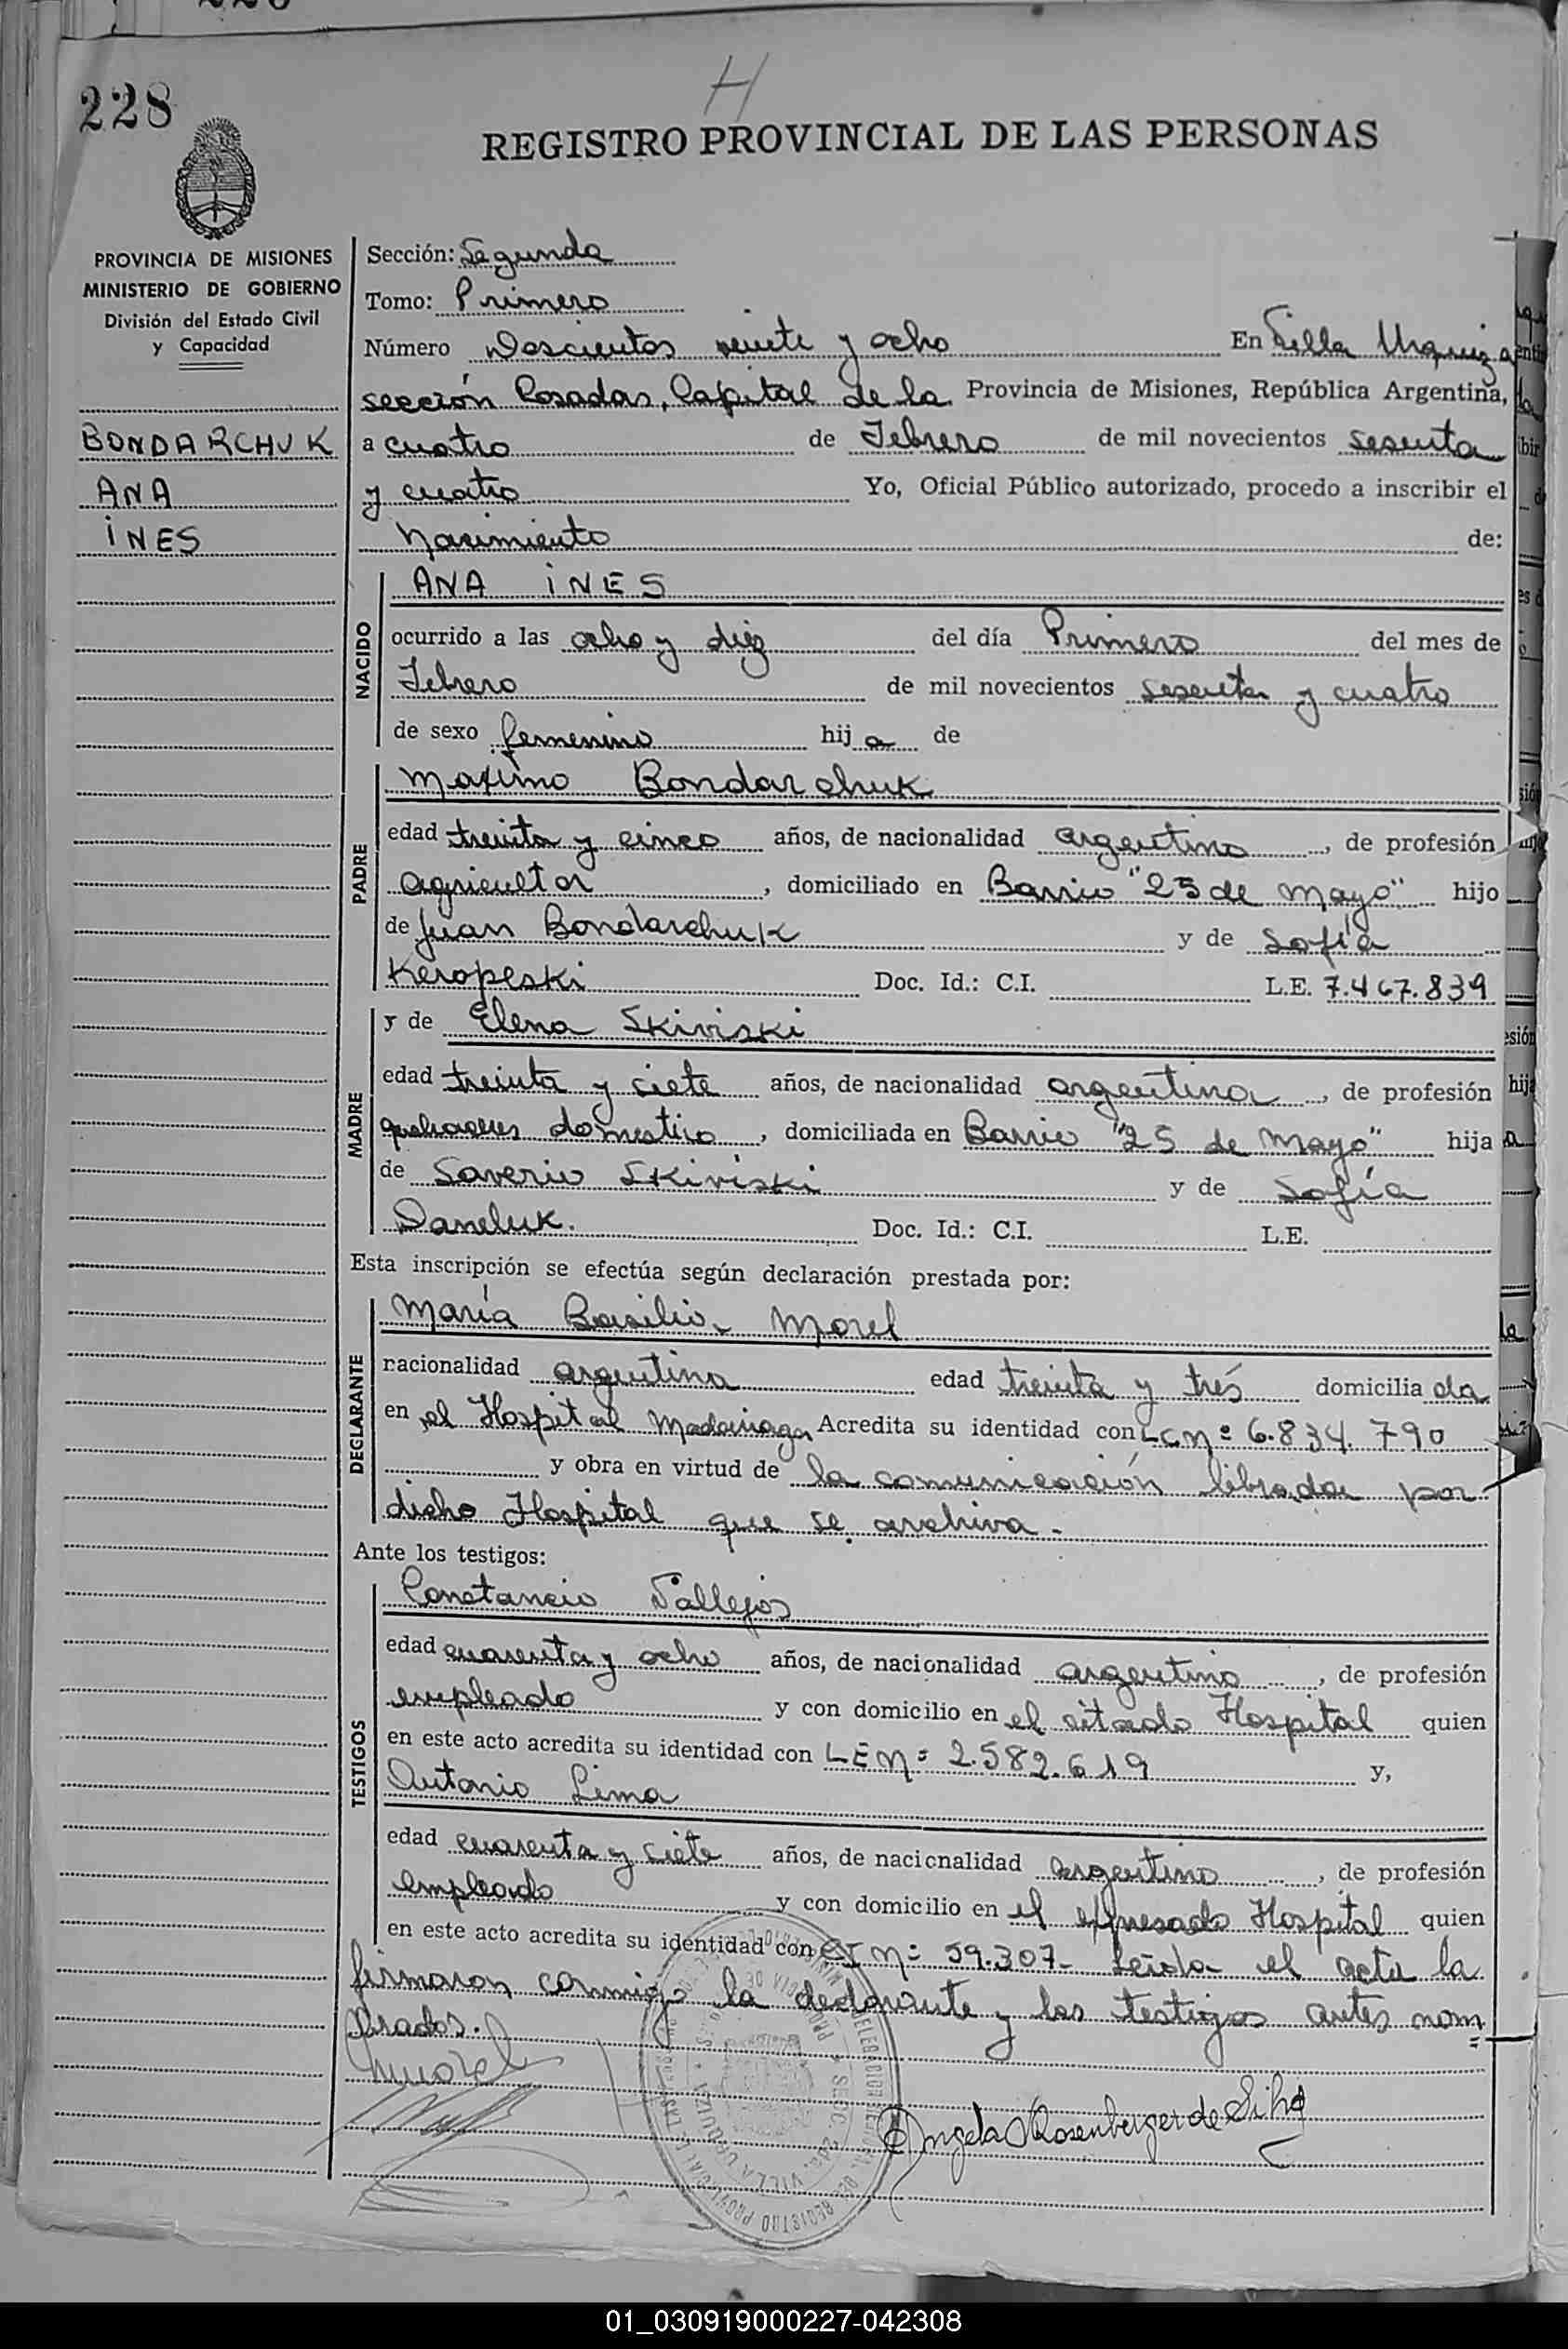 228
H
REGISTRO PROVINCIAL DE LAS PERSONAS
PROVINCIA DE MISIONES
MINISTERIO DE GOBIERNO
División del Estado Civil
y Capacidad
BONDARCHUK
ANA
INES
Sección: Segunda
Tomo: Primero
Número Doscientos veinte y ocho En Villa Urquiza
sección Posadas, Capital de la Provincia de Misiones, República Argentina,
a cuatro de Febrero de mil novecientos sesenta
y cuatro Yo, Oficial Público autorizado, procedo a inscribir el
Nacimiento de:
NACIDO
ANA INES
ocurrido a las ocho y diez del día Primero del mes de
Febrero de mil novecientos sesenta y cuatro
de sexo femenino hija de
PADRE
Maximo Bondarchuk
edad treinta y cinco años, de nacionalidad argentino, de profesión
agricultor, domiciliado en Barrio "25 de Mayo" hijo
de Juan Bondarchuk y de Sofía
Keropeski Doc. Id.: C.I. L.E. 7.467.839
MADRE
y de Elena Skiviski
edad treinta y ciete años, de nacionalidad argentina, de profesión
quehaceres domestico, domiciliada en Barrio "25 de Mayo" hija
de Saverio Skiviski y de Sofía
Daneluk. Doc. Id.: C.I. L.E.
Esta inscripción se efectúa según declaración prestada por:
DECLARANTE
María Basilia Morel
racionalidad argentina edad treinta y trés domiciliada
en el Hospital Madariaga Acredita su identidad con L.C. nº 6.834.790
y obra en virtud de la comunicación librada por
dicho Hospital que se archiva.-
Ante los testigos:
TESTIGOS
Constancio Vallejos
edad cuarenta y ocho años, de nacionalidad argentino, de profesión
empleado y con domicilio en el citado Hospital quien
en este acto acredita su identidad con LE nº 2.582.619 y,
Antonio Lima
edad cuarenta y ciete años, de nacicnalidad argentino, de profesión
empleado y con domicilio en el expresado Hospital quien
en este acto acredita su identidad con CI nº 59.307- Leida el acta la
firmaron conmigo la declarante y los testigos antes nom=
brados.
Morel
Angela Rosenberger de Silva
01_030919000227-042308